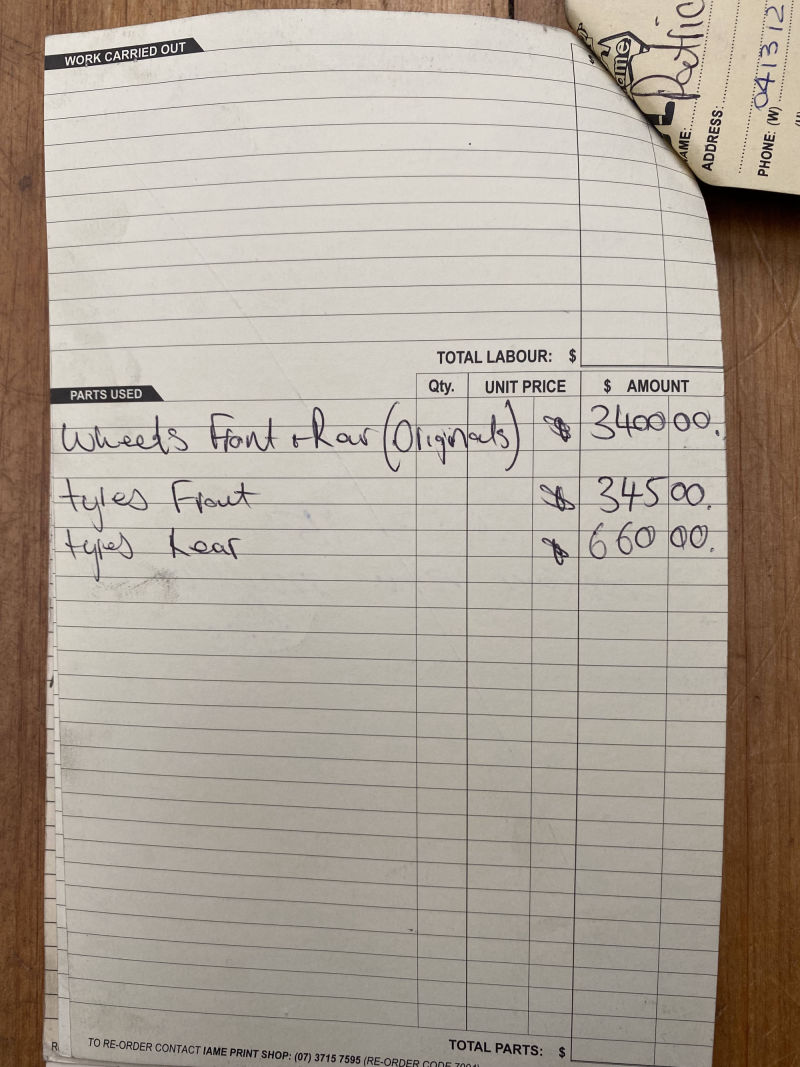 WORK CARRIED OUT
ome
AME:
ADDRESS:
PHONE: (W) 041312
TOTAL LABOUR: $
PARTS USED Qty. UNIT PRICE $ AMOUNT
Wheels Front + Rear (Originals) $ 3400 00.
tyres Front $ 345 00.
tyres Rear $ 660 00.
TO RE-ORDER CONTACT IAME PRINT SHOP: (07) 3715 7595 (RE-ORDER CODE
TOTAL PARTS: $